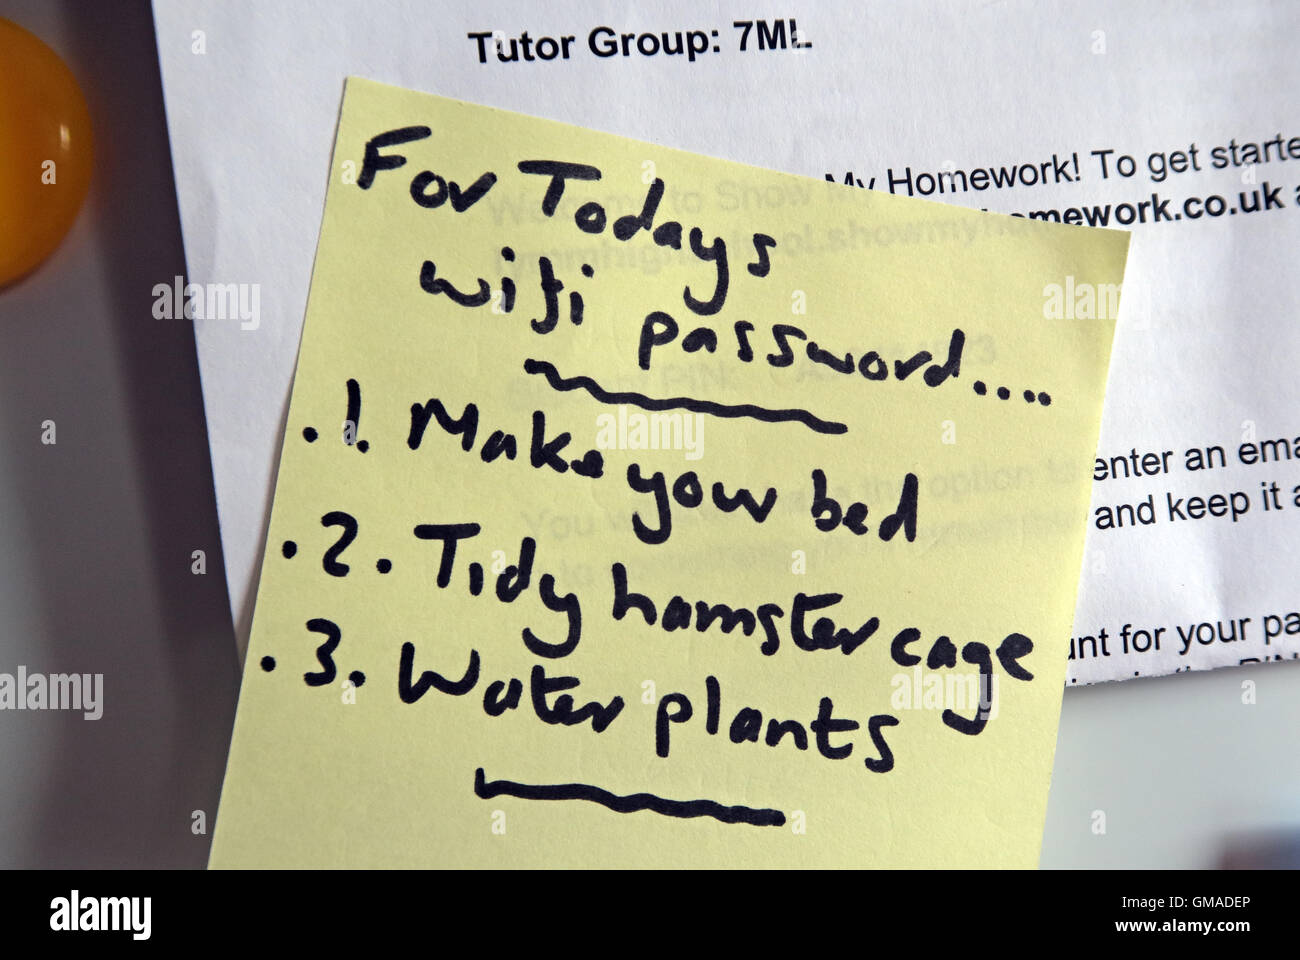 Tutor Group: 7ML
My Homework! To get starte
homework.co.uk a
For Todays
wifi password....
.1. Make your bed
.2. Tidy hamster cage
.3. Water plants
enter an ema
and keep it a
unt for your pa
alamy stock photo
GMADEP
www.alamy.com